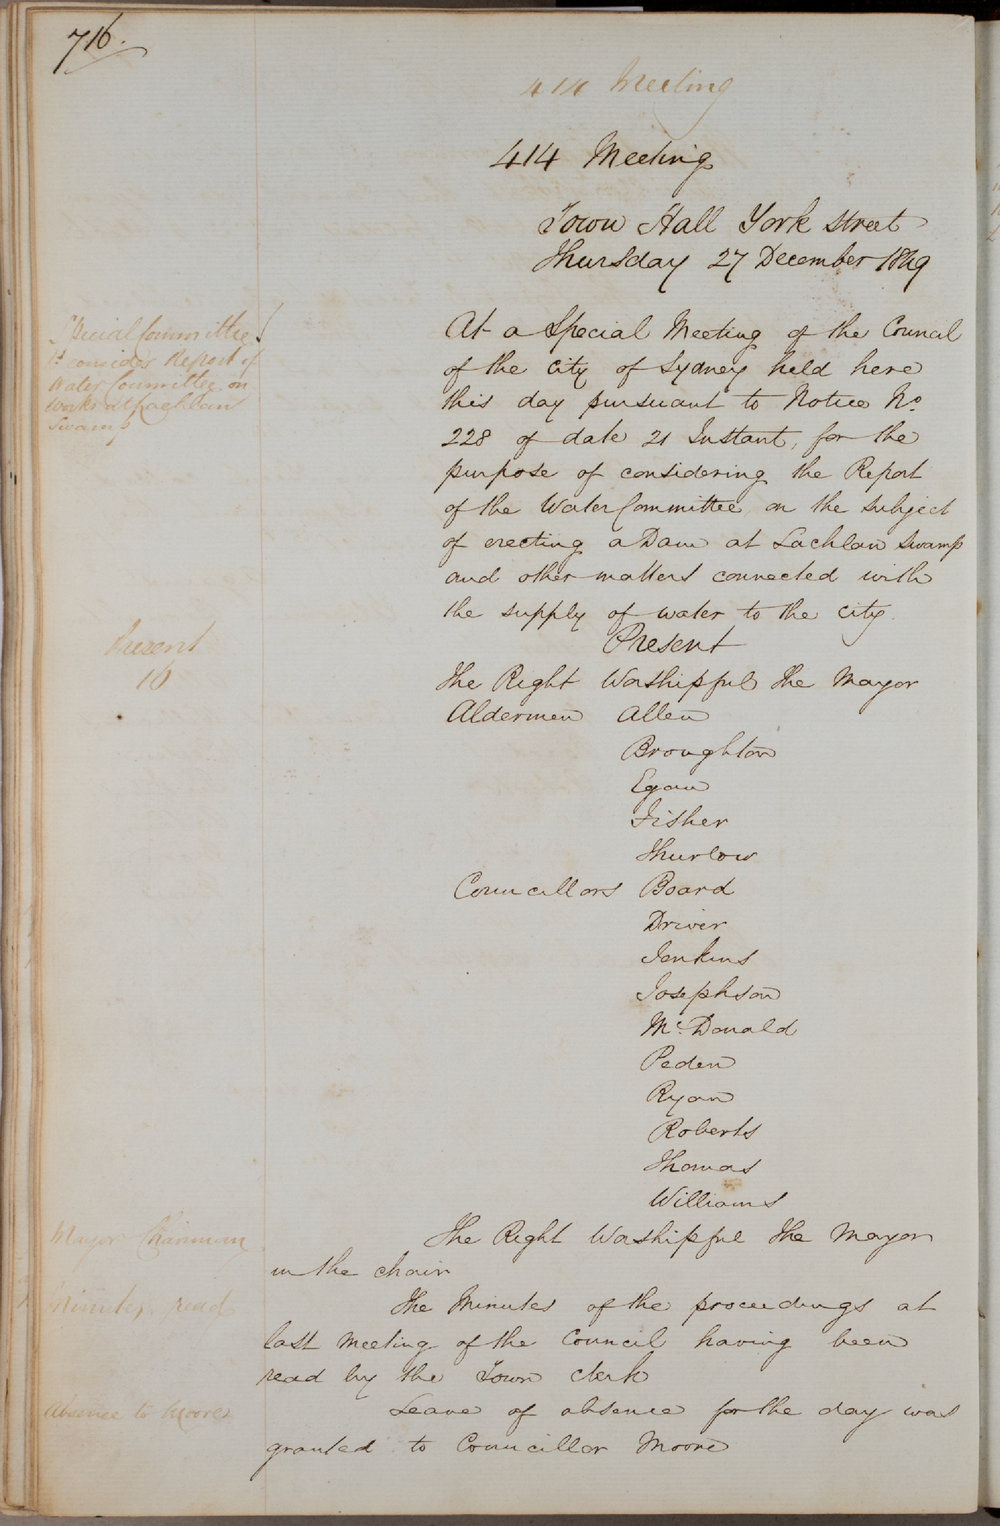 716.
414 Meeting
414 Meeting
Town Hall York Street
Thursday 27 December 1849
Special Committee
to consider Report of
Water Committee on
Works at Lachlan
Swamp
At a Special Meeting of the Council
of the City of Sydney held here
this day pursuant to Notice No.
228 of date 21 Instant, for the
purpose of considering the Report
of the Water Committee on the subject
of erecting a Dam at Lachlan Swamp
and other matters connected with
the supply of water to the City.
Present
16
Present
The Right Worshipful The Mayor
Aldermen Allen
Broughton
Egan
Fisher
Thurlow
Councillors Board
Driver
Jenkins
Josephson
McDonald
Peden
Ryan
Roberts
Thomas
Williams
Mayor Chairman
The Right Worshipful The Mayor
in the chair
Minutes read
The Minutes of the proceedings at
last Meeting of the Council having been
read by the Town Clerk
Absence to Moore
Leave of absence for the day was
granted to Councillor Moore